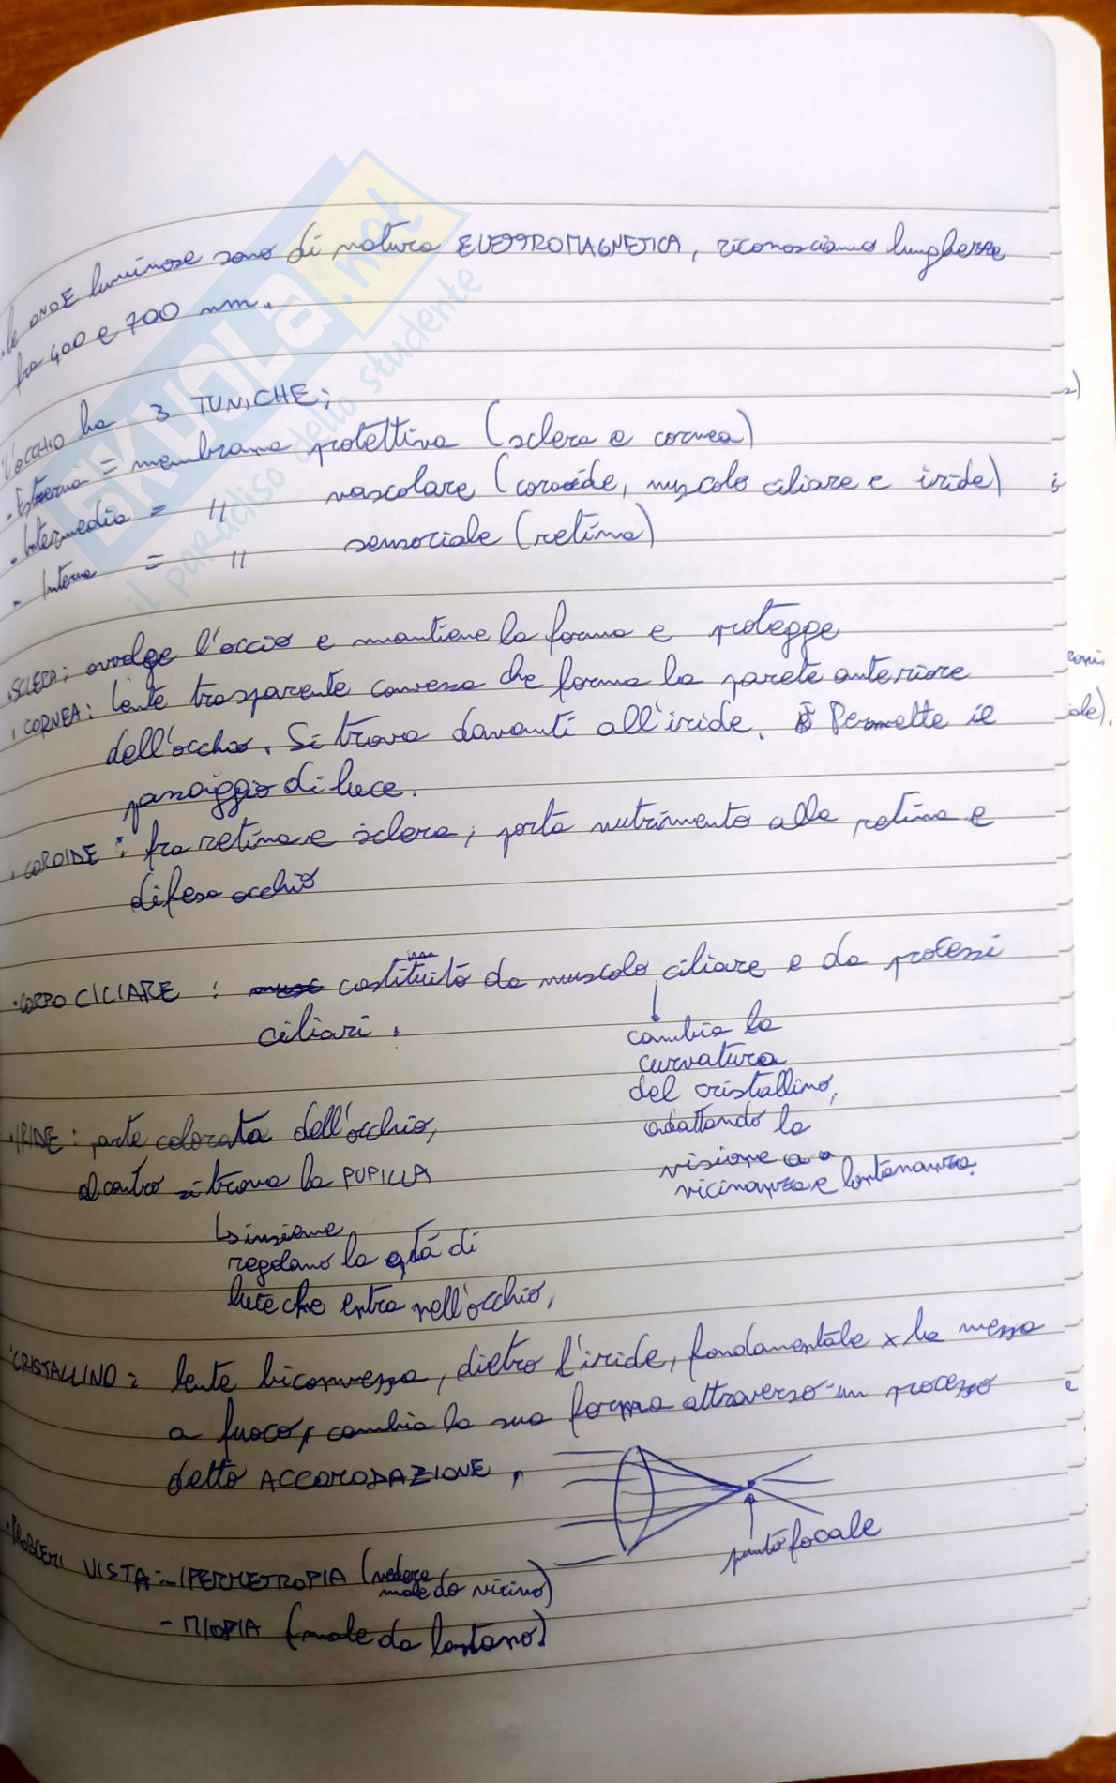 .le ONDE luminose sono di natura ELETTROMAGNETICA, riconosciamo lunghezze
fra 400 e 700 nm.
L'OCCHIO ha 3 TUNICHE:
- Esterna = membrana protettiva (sclera e cornea)
- Intermedia = " vascolare (coroide, muscolo ciliare e iride)
- Interna = " sensoriale (retina)
.SCLERA: avvolge l'occio e mantiene la forma e protegge
. CORNEA: lente trasparente convessa che forma la parete anteriore
dell'occhio. Si trova davanti all'iride. Permette il
passaggio di luce.
. COROIDE: fra retina e sclera, porta nutrimento alla retina e
difesa occhio
.CORPO CILIARE : costituito da muscolo ciliare e da processi
ciliari.
cambia la
curvatura
del cristallino,
adattando la
visione a
vicinanza e lontananza.
.IRIDE: parte colorata dell'occhio,
al centro si trova la PUPILLA
↳ insieme
regolano la qtà di
luce che entra nell'occhio,
.CRISTALLINO: lente biconvessa, dietro l'iride, fondamentale x la messa
a fuoco, cambia la sua forma attraverso un processo
detto ACCOMODAZIONE,
punto focale
.PROBLEMI VISTA: - IPERMETROPIA (vedere
male da vicino)
- MIOPIA (male da lontano)
akuola.net
il paradiso dello studente